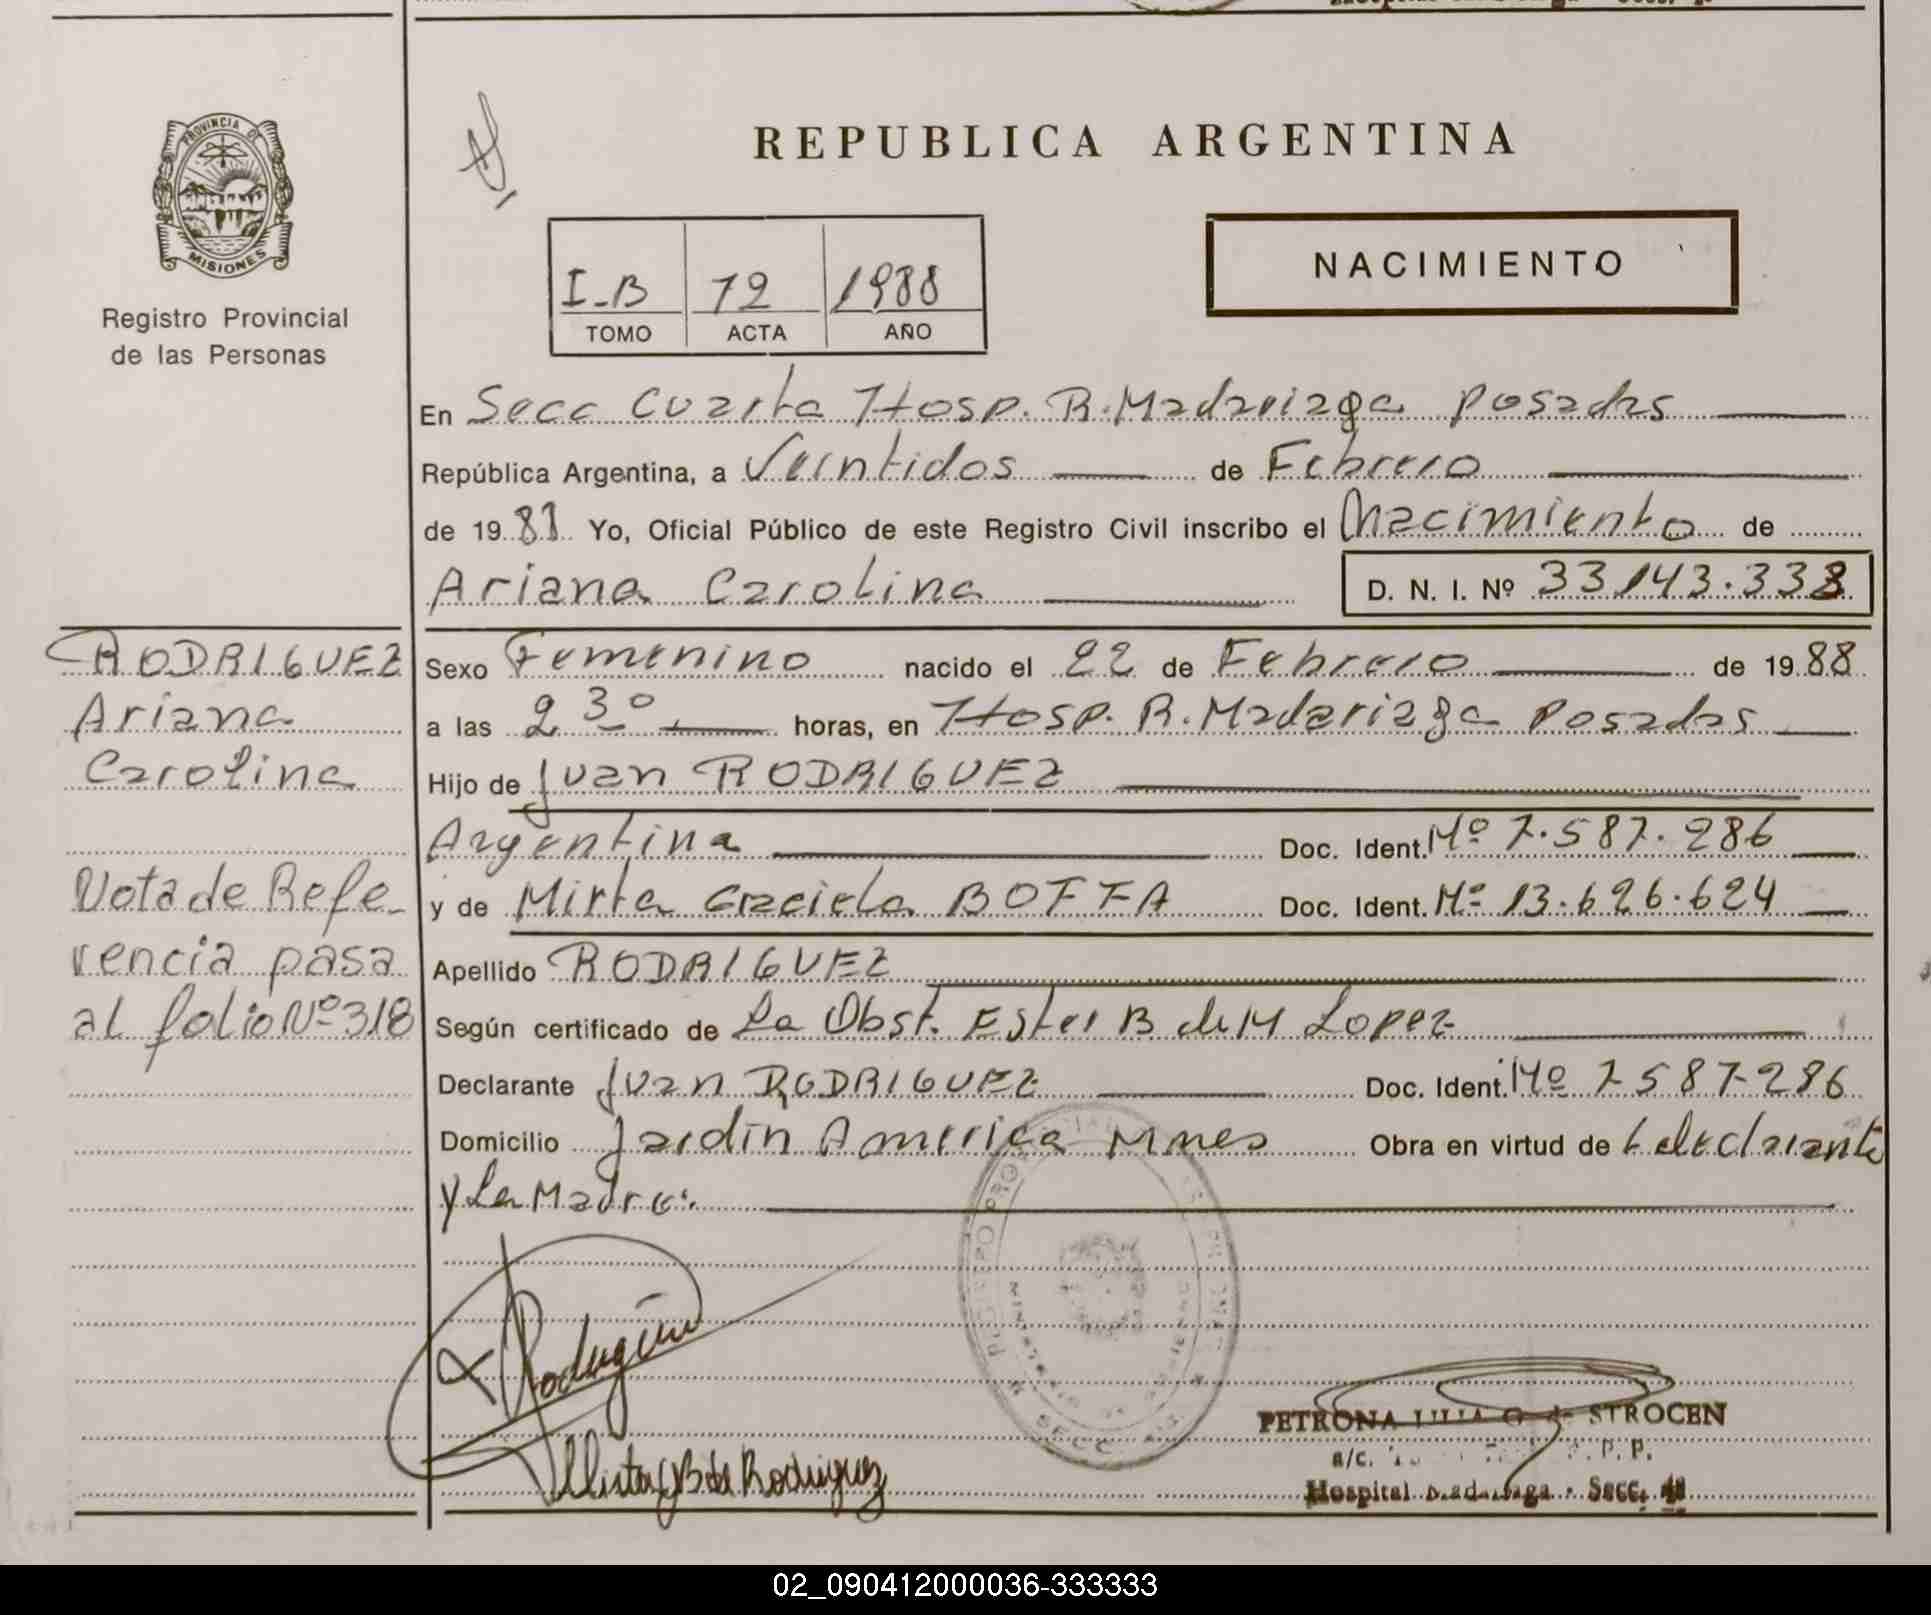 PROVINCIA DE
MISIONES
Registro Provincial
de las Personas
REPUBLICA ARGENTINA
NACIMIENTO
I-B 72 1988
TOMO ACTA AÑO
En Secc Cuarta Hosp. R. Madariaga Posadas
República Argentina, a Veintidos de Febrero
de 19 88 Yo, Oficial Público de este Registro Civil inscribo el Nacimiento de
Ariana Carolina D. N. I. Nº 33.143.338
RODRIGUEZ
Ariana
Carolina
Nota de Refe-
rencia pasa
al folio Nº 318
Sexo Femenino nacido el 22 de Febrero de 19 88
a las 2 30 horas, en Hosp. R. Madariaga Posadas
Hijo de Juan RODRIGUEZ
Argentina Doc. Ident. Mº 7.587.286
y de Mirta Graciela BOFFA Doc. Ident. Nº 13.626.624
Apellido RODRIGUEZ
Según certificado de La Obst. Ester B de M Lopez
Declarante Juan RODRIGUEZ Doc. Ident. Mº 7587286
Domicilio Jardin America Mnes Obra en virtud de l declarante
y La Madre.
Mirta G B de Rodriguez
PETRONA STROCEN
a/c.
Hospital Madariaga - Secc. 4ª
02_090412000036-333333